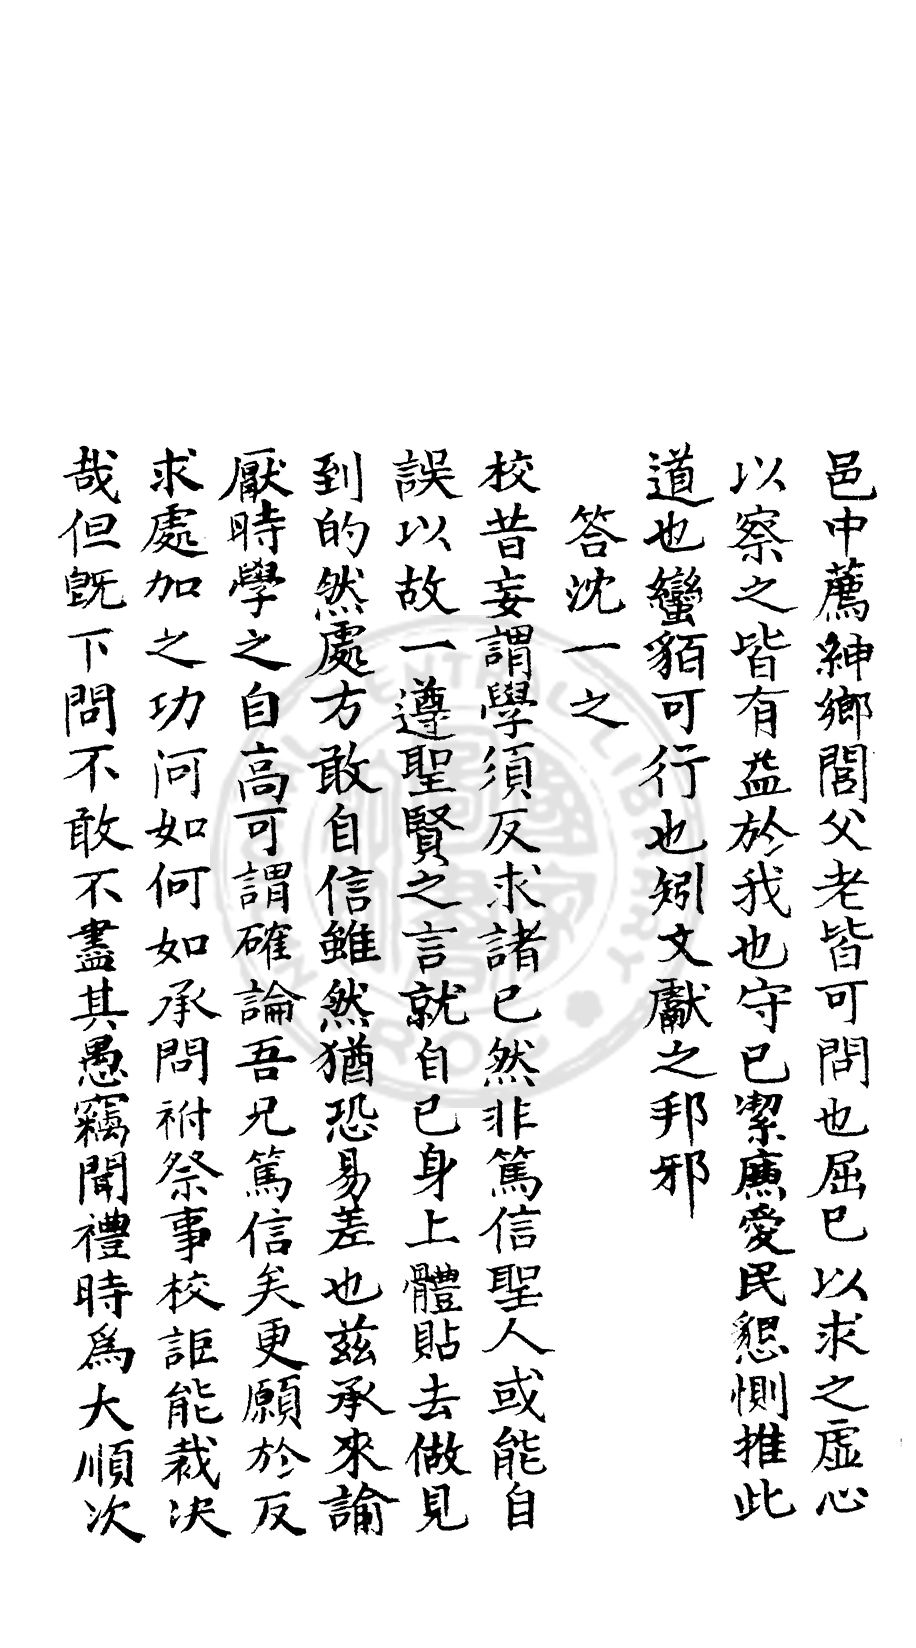 邑中薦紳鄉閭父老皆可問也屈已以求之虛心
以察之皆有益於我也守已潔廉愛民懇惻推此
道也蠻貊可行也矧文獻之邦邪
答沈一之
校昔妄謂學須反求諸已然非篤信聖人或能自
誤以故一遵聖賢之言就自已身上體貼去做見
到的然處方敢自信雖然猶恐易差也茲承來諭
厭時學之自高可謂確論吾兄篤信矣更願於反
求處加之功何如何如承問祔祭事校詎能裁决
哉但旣下問不敢不盡其愚竊聞禮時爲大順次